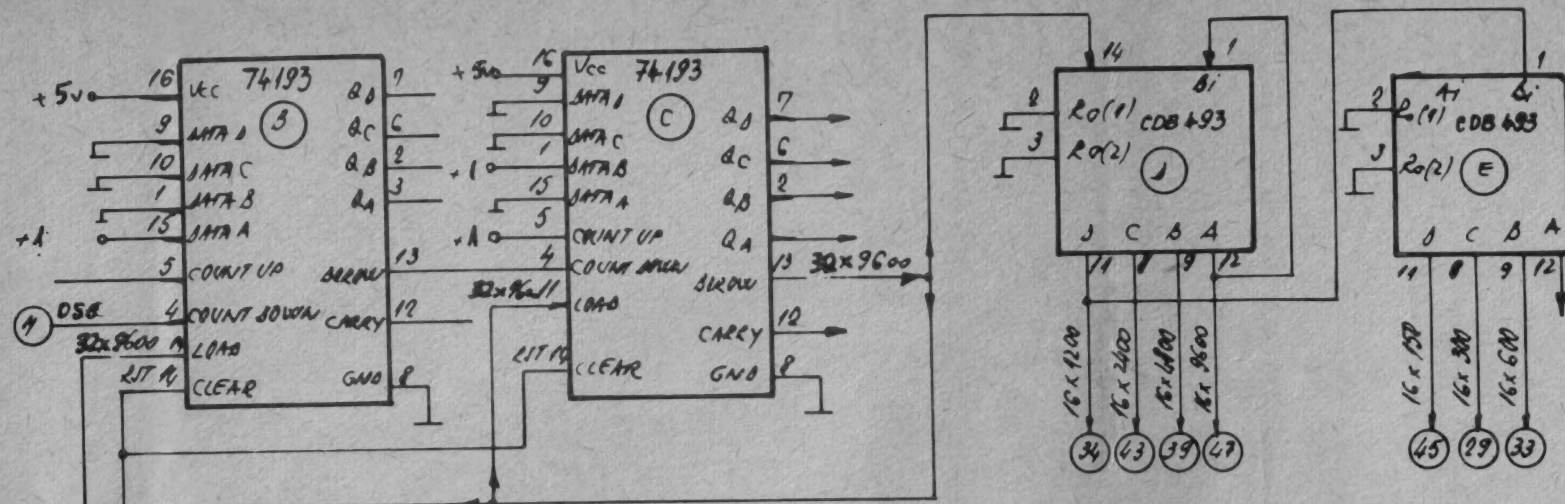 74193
B
+5v
16
VCC
9
DATA D
10
DATA C
1
DATA B
+1
15
DATA A
5
COUNT UP
OSC
4
COUNT DOWN
32x9600
LOAD
RST 14
CLEAR
QD
7
QC
6
QB
2
QA
3
BORROW
13
CARRY
12
GND
8
74193
C
+5v
16
Vcc
9
DATA D
10
DATA C
+1
1
DATA B
15
DATA A
+1
5
COUNT UP
4
COUNT DOWN
32x9600
11
LOAD
RST 14
CLEAR
QD
7
QC
6
QB
2
QA
BORROW
13
32x9600
CARRY
12
GND
8
14
1
Bi
2
Ro(1)
CDB 493
3
Ro(2)
D
D C B A
11 8 9 12
16x1200
16x2400
16x4800
16x9600
34
43
39
47
1
Ai
Bi
2
Ro(1)
CDB 493
3
Ro(2)
E
D C B A
11 8 9 12
16x150
16x300
16x600
45
29
33